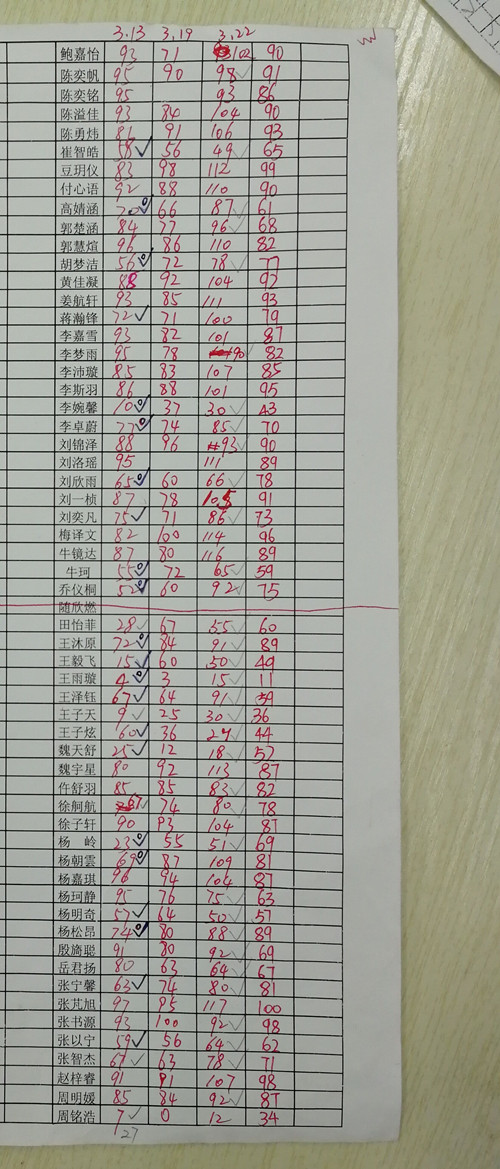 3.13 3.19 3.22
鲍嘉怡 93 71 102 90
陈奕帆 95 90 98✓ 91
陈奕铭 95 93 86
陈溢佳 93 84 104 90
陈勇炜 86 91 106 93
崔智皓 58✓ 56 49✓ 65
豆玥仪 83 98 112 99
付心语 92 88 110 90
高婧涵 70✓ 66 87✓ 61
郭楚涵 84 77 96✓ 68
郭慧煊 96 86 110 82
胡梦洁 56✓ 72 78✓ 77
黄佳凝 88 92 104 92
姜航轩 93 85 111 93
蒋瀚锋 72✓ 71 100 79
李嘉雪 93 82 101 87
李梦雨 95 78 90✓ 82
李沛璇 85 83 107 85
李斯羽 86 88 101 95
李婉馨 10✓ 37 30✓ 43
李卓蔚 77✓ 74 85✓ 70
刘锦泽 88 96 93✓ 90
刘洛瑶 95 111 89
刘欣雨 65✓ 60 66✓ 78
刘一桢 87 78 105 91
刘奕凡 75✓ 71 86✓ 73
梅译文 82 100 114 96
牛镜达 87 80 116 89
牛珂 55✓ 72 65✓ 59
乔仪桐 52✓ 60 92✓ 75
随欣燃
田怡菲 28✓ 67 55✓ 60
王沐原 72✓ 84 91✓ 89
王毅飞 15✓ 60 50✓ 49
王雨璇 4✓ 3 15✓ 11
王泽钰 67✓ 64 91✓ 59
王子天 9✓ 25 30✓ 36
王子炫 60✓ 36 27✓ 44
魏天舒 25✓ 12 18✓ 57
魏宇星 80 92 113 87
仵舒羽 85 85 83✓ 82
徐舸航 67✓ 74 80✓ 78
徐子轩 90 93 104 87
杨岭 23✓ 55 51✓ 69
杨朝雲 69✓ 87 109 81
杨嘉琪 96 94 104 87
杨珂静 95 76 75✓ 63
杨明奇 57✓ 64 50✓ 57
杨松昂 74✓ 80 88✓ 89
殷旖聪 91 80 92✓ 69
岳君扬 80 63 64✓ 67
张宁馨 63✓ 74 80✓ 81
张芃旭 97 95 117 100
张书源 93 100 92✓ 98
张以宁 59✓ 56 64✓ 62
张智杰 67✓ 63 78✓ 71
赵梓睿 91 91 107 98
周明媛 85 84 92✓ 87
周铭浩 7✓ 0 12 34
27